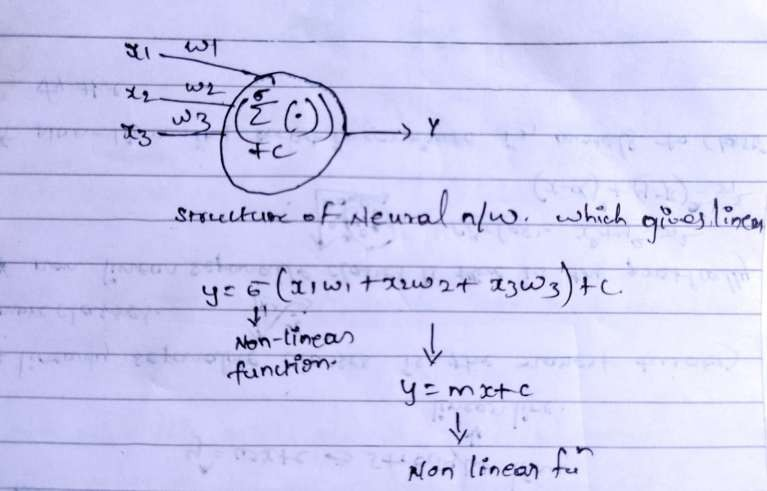 x1 w1
x2 w2
x3 w3
σ
(Σ (·))
+c
Y
Structure of Neural n/w. which gives linear
y = σ (x1w1 + x2w2 + x3w3) + c.
Non-linear
function.
y = mx+c
Non linear fuⁿ